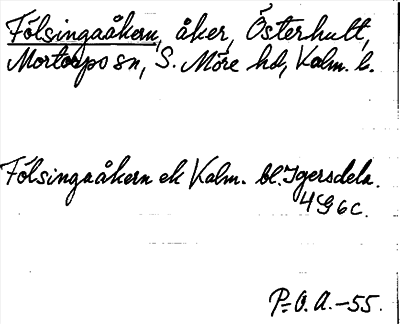 Fölsingaåkern, åker, Österhult,
Mortorps sn, S. Möre hd, Kalm. l.
Fölsingaåkern ek Kalm. bl. Igersdela.
4G6c.
P-O. A. -55.